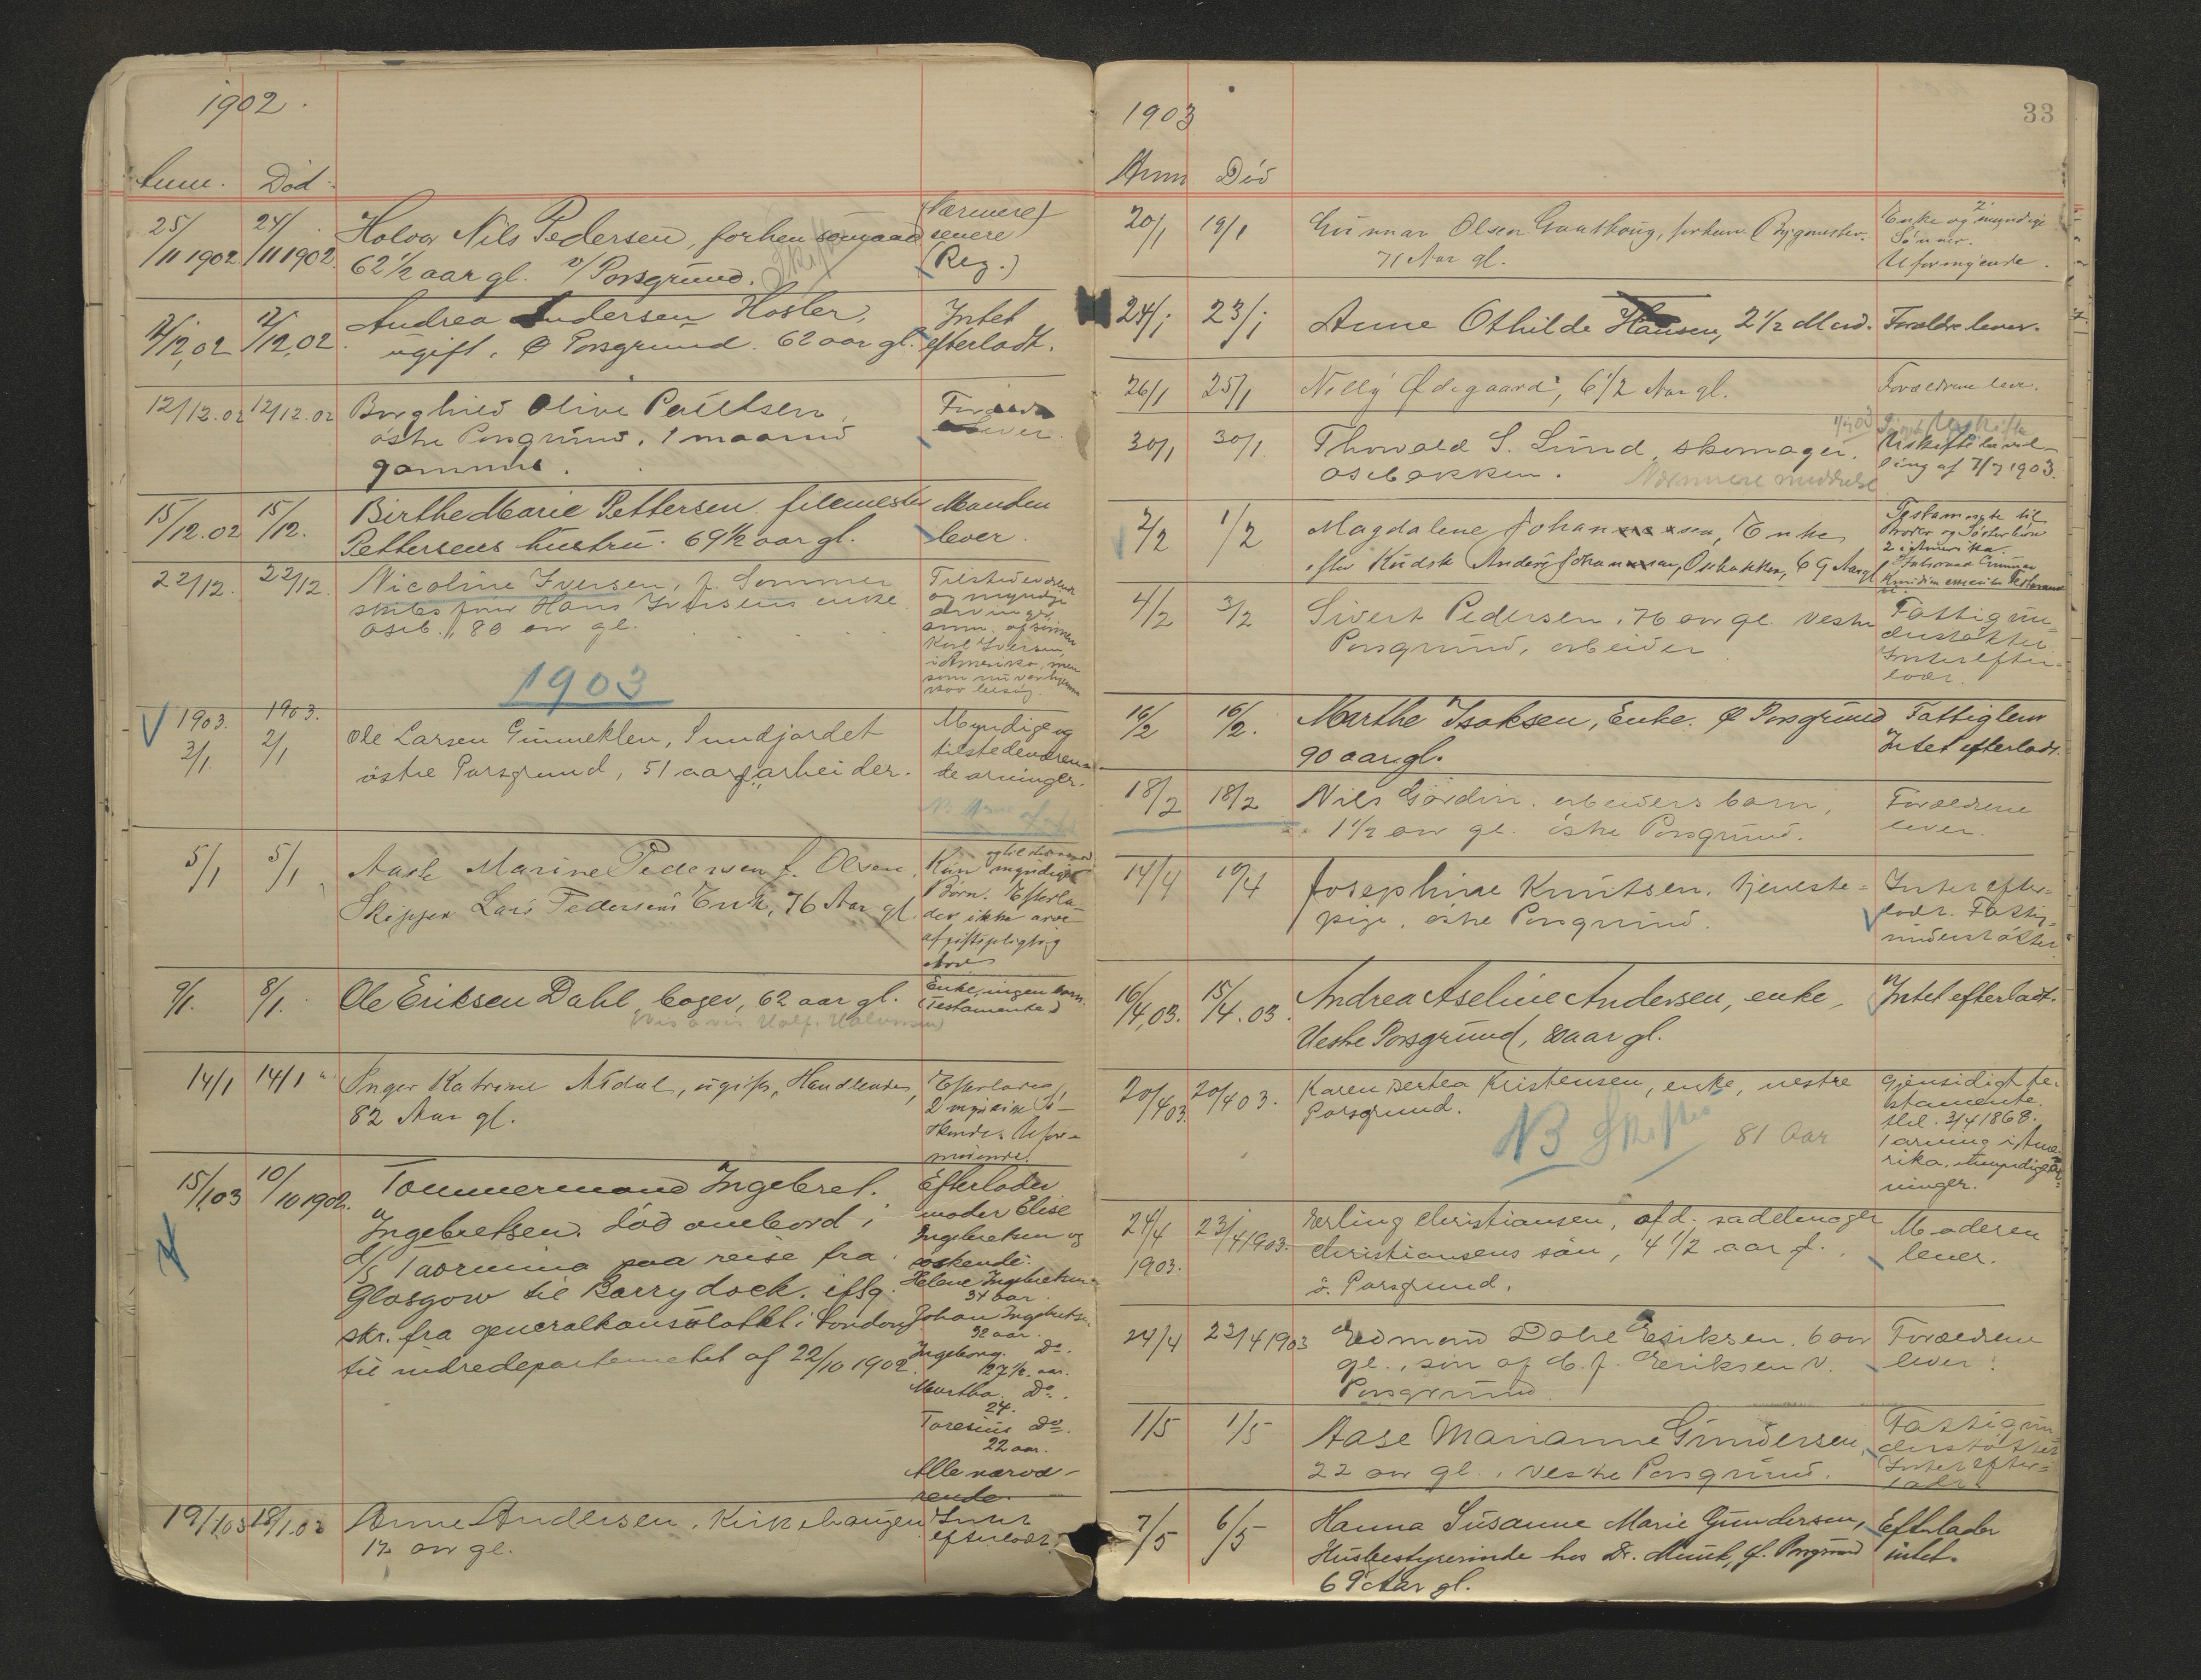 1902.
Anm. Død.
25/11 1902 24/11 1902. Holvor Nils Pedersen, forhen sømand (Nærmere)
senere
62 1/2 aar gl. v/Porsgrund. Skifte (Reg.)
12/12,02 12/12,02. Andrea Andersen Hosler, Intet
ugift. Ø Porsgrund. 62 aar gl. efterladt.
12/12.02 12/12.02 Borghild Olive Paulsen,
østre Porsgrund, 1 maaned lever.
gammel.
15/12.02 15/12. Birthe Marie Pettersen filemester Manden
Pettersens hustru. 69 1/2 aar gl. lever.
22/12. 22/12. Nicoline Iversen, f. Sommer Tilstedeværende
skibsfører Hans Iversens enke og myndige
Oseb. 80 aar gl. arvinger,
Karl Iversen,
i Amerika, men
som nu var hjemme
1903
1903. 1903.
3/1. 2/1 Ole Larsen Gunneklev, Sundjordet Myndige og
østre Porsgrund, 51 aar g., arbeider. tilstedeværen-
de arvinger.
5/1 5/1 Aaste Marine Pedersen f. Olsen, Kun myndige og tilstedeværende
Skipper Lars Pedersens Enke, 76 Aar gl. Børn. Efterla-
der ikke arve-
afgiftspligtig
9/1. 8/1. Ole Eriksen Dahl, bager, 62 aar gl. Enke, ingen barn.
(Testamente)
(Vis a vis Halv. Halvorsen)
14/1 14/1 Inger Katrine Aadal, ugift, Handlende, Efterlader
82 Aar gl. 2 myndige Sø-
skende. Ufor-
muende.
15/1,03 10/10 1902. Tømmermand Ingebret. Efterlader
Ingebretsen. Død ombord i moder Elise
D/S Taormina paa reise fra Ingebretsen og
søskende:
Glasgow til Barry dock. ifølg. Helene Ingebretsen
34 aar
skr. fra generalkonsulatet i London Johan Ingebretsen
32 aar.
til indredepartementet af 22/10 1902. Ingeborg. Do.
27 1/2. aar.
Martha. Do.
24.
Toresius Do.
22 aar.
Alle nærvæ-
rende.
19/1,03 18/1.03 Anne Andersen. Kirkehaugen Intet
12 aar gl. efterladt.
33
1903
Anm Død
20/1 19/1 Gunnar Olsen Gaaskoug, forhenv. Bygmester. Enke og 2 myndige
71 Aar gl. Sønner.
Uformuende.
24/1 23/1 Anne Othilde Hansen, 2 1/2 Mnd. Forældre lever.
26/1 25/1 Nelly Ødegaard, 6 1/2 Aar gl. Forældrene lever.
30/1 30/1. Thorvald S. Lund, skomager. Uskiftebevil-
Osebakken. Nærmere meddeles ling af 7/7 1903.
2/2 1/2 Magdalene Johannesen, Enke Testamente til
Broder og Søsterbørn
2 i Amerika.
efter Kudsk Anders Johannesen, Osebakken, 69 Aar gl.
4/2 3/2 Sivert Pedersen, 76 aar gl. Vestre Fattigun-
Porsgrund, arbeider derstøttet
Intet efter-
ladt.
16/2 16/2. Marthe Isaksen, Enke. Ø Porsgrund Fattiglem
90 aar gl. Intet efterladt.
18/2 18/2 Nils Gordin. arbeiders barn, Forældrene
1 1/2 aar gl. østre Porsgrund. lever.
14/4 10/4 Josephine Knutsen, tjeneste- Intet efter-
pige, østre Porsgrund. ladt. Fattig-
understøttet
16/4,03. 15/4.03. Andrea Aseline Andersen, enke, Intet efterladt.
Vestre Porsgrund, 80 aar gl.
20/4 03. 20/4 03. Karen Bertea Kristensen, enke, vestre Gjensidigt te-
Porsgrund. stamente.
NB Skifte 81 Aar dat. 3/4 1868.
1 arving i Ame-
rika. Myndige ar-
vinger.
24/4 1903. 23/4 1903. Erling Christiansen, afd. sadelmager Moderen
Christiansens søn, 4 1/2 aar g. lever.
ø. Porsgrund.
24/4 23/4 1903 Edmund Dahl Eriksen, 6 aar Forældrene
gl., søn af C. J. Eriksen V. lever.
Porsgrund.
1/5 1/5 Aase Marianne Gundersen, Fattigun-
22 aar gl., vestre Porsgrund. derstøttet
Intet efter-
ladt
7/5 6/5 Hanna Susanne Marie Gundersen, Efterlader
Husbestyrerinde hos Dr. Munk, Ø. Porsgrund intet.
69 Aar gl.